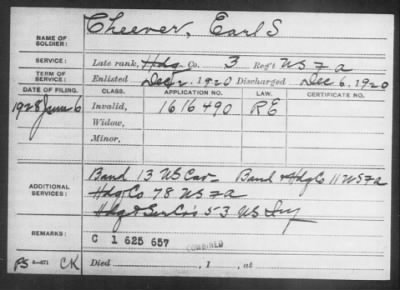 NAME OF SOLDIER: Cheever, Earl S
SERVICE: Late rank, Hdq Co. 3 Reg't US F A
TERM OF SERVICE: Enlisted Dec 1920 Discharged Dec 6, 1920
DATE OF FILING. CLASS. APPLICATION NO. LAW. CERTIFICATE NO.
1928 June 6 Invalid, 1616490 RE
Widow,
Minor,
ADDITIONAL SERVICES: Band 13 US Cav Band & Hdq Co 11 US F A
Hdq Co 78 US F A
Hdq & Ser Co's 53 US Inf
REMARKS: C 1 625 657 COMBINED
CK Died , 1 , at